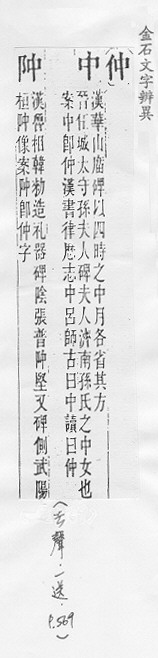 金石文字辨異
(仲)
中 漢華山廟碑以四時之中月各省其方
晉任城太守孫夫人碑夫人濟南孫氏之中女也
案中即仲漢書律歷志中呂師古曰中讀曰仲
𨸝 漢韓勑造禮器碑陰張普𨸝堅又碑側武陽
桓𨸝像案𨸝即仲字
(去聲·一送·P.569)